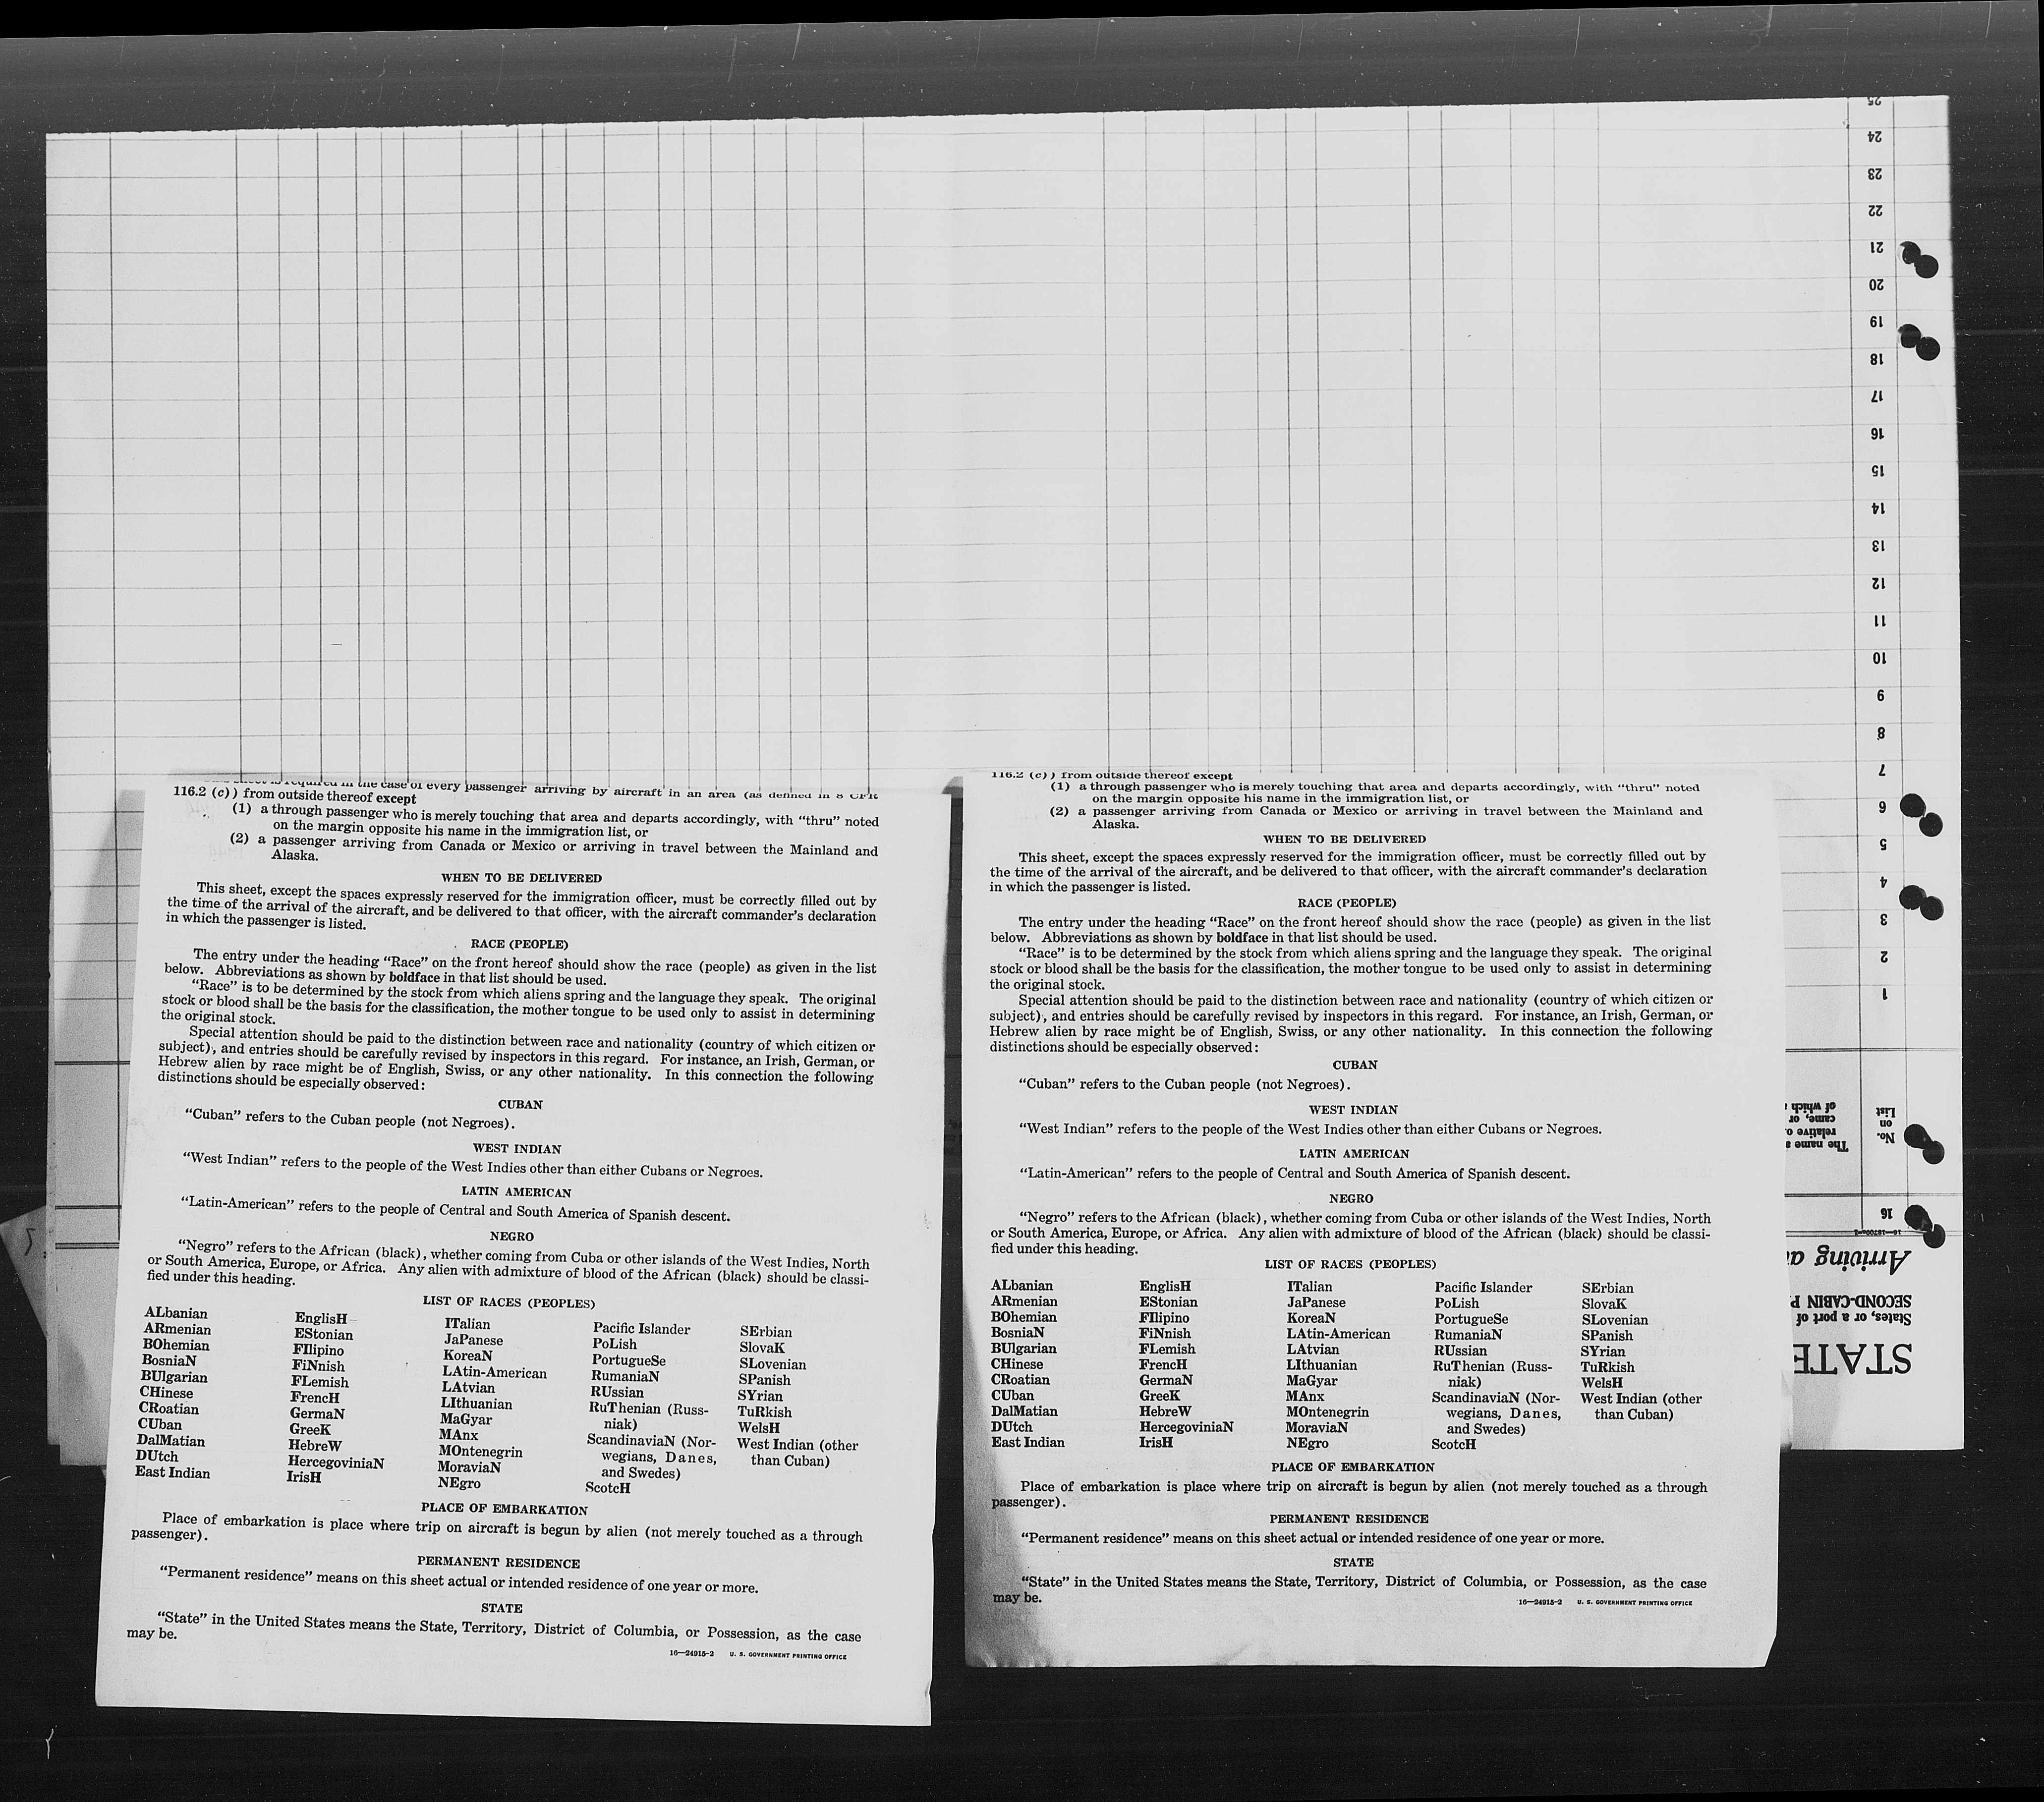 25
24
23
22
21
20
19
18
17
16
15
14
13
12
11
10
9
8
7
6
5
4
3
2
1
No.
on
List
The name a
relative o
came, or
of which
16
Arriving a
SECOND-CABIN P
States, or a port of
STATE
case of every passenger arriving by aircraft in an area (as defined in 8 CFR
116.2 (c)) from outside thereof except
(1) a through passenger who is merely touching that area and departs accordingly, with “thru” noted
on the margin opposite his name in the immigration list, or
(2) a passenger arriving from Canada or Mexico or arriving in travel between the Mainland and
Alaska.
WHEN TO BE DELIVERED
This sheet, except the spaces expressly reserved for the immigration officer, must be correctly filled out by
the time of the arrival of the aircraft, and be delivered to that officer, with the aircraft commander’s declaration
in which the passenger is listed.
RACE (PEOPLE)
The entry under the heading “Race” on the front hereof should show the race (people) as given in the list
below. Abbreviations as shown by boldface in that list should be used.
“Race” is to be determined by the stock from which aliens spring and the language they speak. The original
stock or blood shall be the basis for the classification, the mother tongue to be used only to assist in determining
the original stock.
Special attention should be paid to the distinction between race and nationality (country of which citizen or
subject), and entries should be carefully revised by inspectors in this regard. For instance, an Irish, German, or
Hebrew alien by race might be of English, Swiss, or any other nationality. In this connection the following
distinctions should be especially observed:
CUBAN
“Cuban” refers to the Cuban people (not Negroes).
WEST INDIAN
“West Indian” refers to the people of the West Indies other than either Cubans or Negroes.
LATIN AMERICAN
“Latin-American” refers to the people of Central and South America of Spanish descent.
NEGRO
“Negro” refers to the African (black), whether coming from Cuba or other islands of the West Indies, North
or South America, Europe, or Africa. Any alien with admixture of blood of the African (black) should be classi-
fied under this heading.
LIST OF RACES (PEOPLES)
ALbanian
ARmenian
BOhemian
BosniaN
BUlgarian
CHinese
CRoatian
CUban
DalMatian
DUtch
East Indian
EnglisH
EStonian
FIlipino
FiNnish
FLemish
FrencH
GermaN
GreeK
HebreW
HercegoviniaN
IrisH
ITalian
JaPanese
KoreaN
LAtin-American
LAtvian
LIthuanian
MaGyar
MAnx
MOntenegrin
MoraviaN
NEgro
Pacific Islander
PoLish
PortugueSe
RumaniaN
RUssian
RuThenian (Russ-
niak)
ScandinaviaN (Nor-
wegians, Danes,
and Swedes)
ScotcH
SErbian
SlovaK
SLovenian
SPanish
SYrian
TuRkish
WelsH
West Indian (other
than Cuban)
PLACE OF EMBARKATION
Place of embarkation is place where trip on aircraft is begun by alien (not merely touched as a through
passenger).
PERMANENT RESIDENCE
“Permanent residence” means on this sheet actual or intended residence of one year or more.
STATE
“State” in the United States means the State, Territory, District of Columbia, or Possession, as the case
may be.
16—24915-2 U. S. GOVERNMENT PRINTING OFFICE
116.2 (c)) from outside thereof except
(1) a through passenger who is merely touching that area and departs accordingly, with “thru” noted
on the margin opposite his name in the immigration list, or
(2) a passenger arriving from Canada or Mexico or arriving in travel between the Mainland and
Alaska.
WHEN TO BE DELIVERED
This sheet, except the spaces expressly reserved for the immigration officer, must be correctly filled out by
the time of the arrival of the aircraft, and be delivered to that officer, with the aircraft commander’s declaration
in which the passenger is listed.
RACE (PEOPLE)
The entry under the heading “Race” on the front hereof should show the race (people) as given in the list
below. Abbreviations as shown by boldface in that list should be used.
“Race” is to be determined by the stock from which aliens spring and the language they speak. The original
stock or blood shall be the basis for the classification, the mother tongue to be used only to assist in determining
the original stock.
Special attention should be paid to the distinction between race and nationality (country of which citizen or
subject), and entries should be carefully revised by inspectors in this regard. For instance, an Irish, German, or
Hebrew alien by race might be of English, Swiss, or any other nationality. In this connection the following
distinctions should be especially observed:
CUBAN
“Cuban” refers to the Cuban people (not Negroes).
WEST INDIAN
“West Indian” refers to the people of the West Indies other than either Cubans or Negroes.
LATIN AMERICAN
“Latin-American” refers to the people of Central and South America of Spanish descent.
NEGRO
“Negro” refers to the African (black), whether coming from Cuba or other islands of the West Indies, North
or South America, Europe, or Africa. Any alien with admixture of blood of the African (black) should be classi-
fied under this heading.
LIST OF RACES (PEOPLES)
ALbanian
ARmenian
BOhemian
BosniaN
BUlgarian
CHinese
CRoatian
CUban
DalMatian
DUtch
East Indian
EnglisH
EStonian
FIlipino
FiNnish
FLemish
FrencH
GermaN
GreeK
HebreW
HercegoviniaN
IrisH
ITalian
JaPanese
KoreaN
LAtin-American
LAtvian
LIthuanian
MaGyar
MAnx
MOntenegrin
MoraviaN
NEgro
Pacific Islander
PoLish
PortugueSe
RumaniaN
RUssian
RuThenian (Russ-
niak)
ScandinaviaN (Nor-
wegians, Danes,
and Swedes)
ScotcH
SErbian
SlovaK
SLovenian
SPanish
SYrian
TuRkish
WelsH
West Indian (other
than Cuban)
PLACE OF EMBARKATION
Place of embarkation is place where trip on aircraft is begun by alien (not merely touched as a through
passenger).
PERMANENT RESIDENCE
“Permanent residence” means on this sheet actual or intended residence of one year or more.
STATE
“State” in the United States means the State, Territory, District of Columbia, or Possession, as the case
may be.
16—24915-2 U. S. GOVERNMENT PRINTING OFFICE